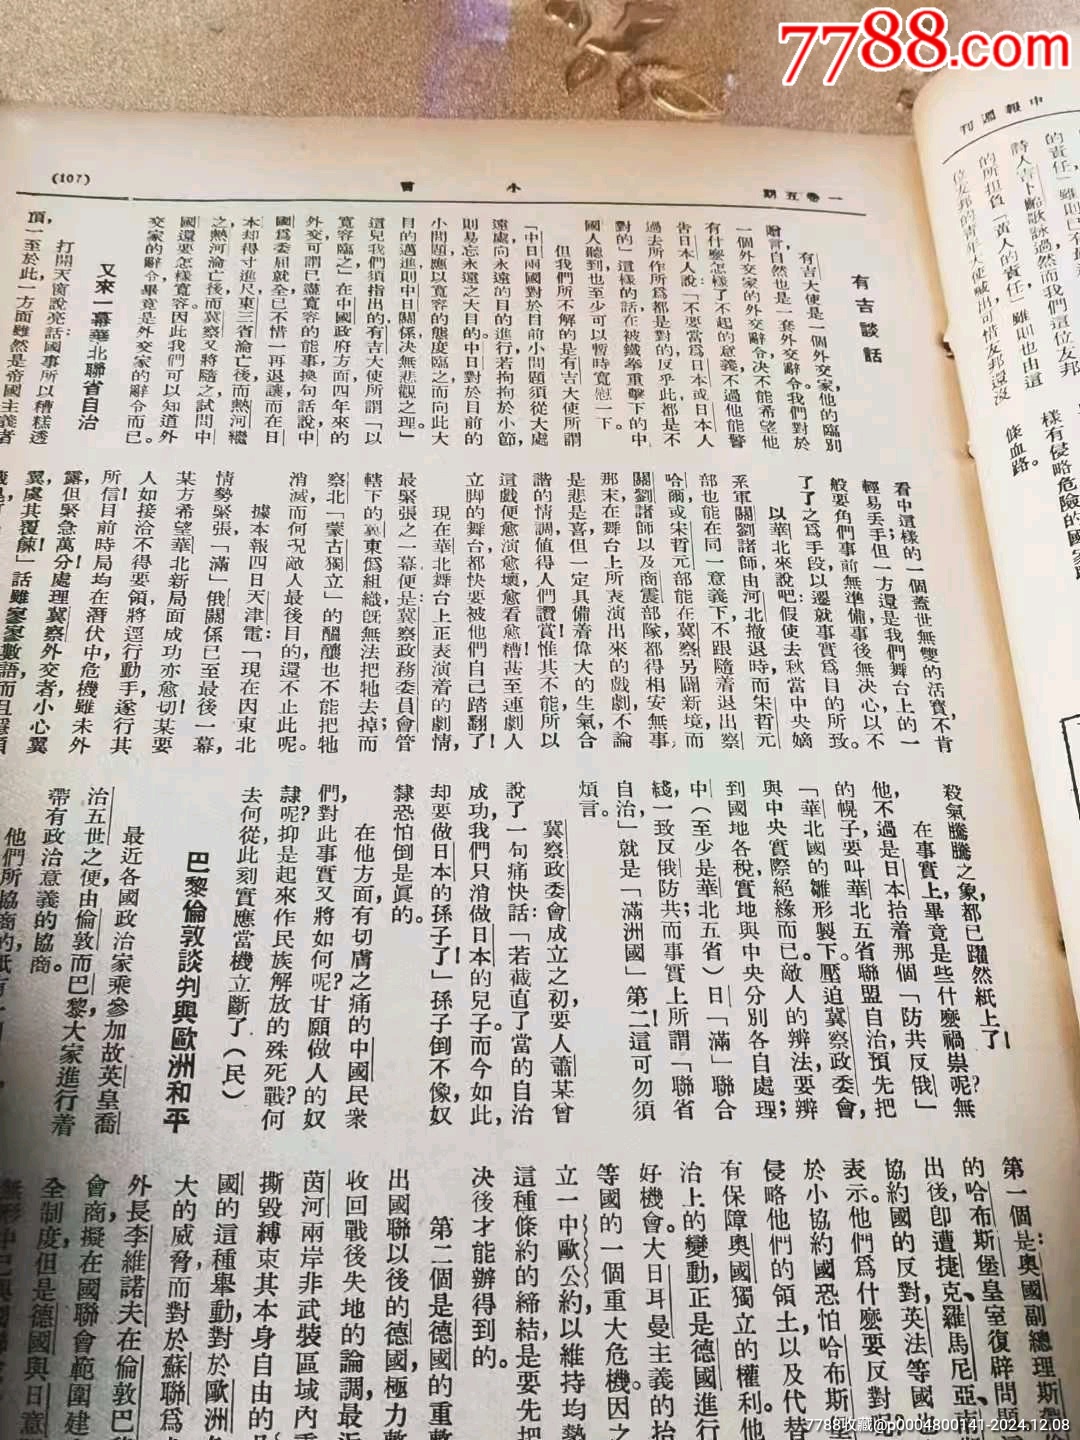 7788.com
申報週刊
一卷五期
小言
(107)
有吉談話
有吉大使是一個外交家,他的臨別
贈言,自然也是一套外交辭令。我們對於
一個外交家的外交辭令,決不能希望他
有什麼怎樣了不起的意義,不過他能警
告日本人說:「不要當爲日本或日本人
過去所作所爲都是對的,反乎此都是不
對的」這樣的話在被鐵拳重擊下的中
國人聽到,也至少可以暫時寬慰一下。
但我們所不解的是有吉大使所謂
「中日兩國對於目前小問題,須從大處
遠處向永遠的目的進行,若拘拘於小節,
則易忘永遠之大目的。中日對於目前的
小問題,應以寬容的態度臨之,而向此大
目的邁進,則中日關係決無悲觀之理」
這兒我們須指出的,有吉大使所謂「以
寬容臨之」,在中國政府方面,四年來的
外交可謂已盡寬容的能事,換句話說,中
國爲委屈就全,已不惜一再退讓,而在日
本,却得寸進尺,東三省淪亡後,而熱河繼
之,熱河淪亡後,而冀察又將隨之,試問中
國還要怎樣寬容。因此我們可以知道,外
交家的辭令,畢竟是外交家的辭令而已。
又來一幕華北聯省自治
打開天窗說亮話:國事所以糟糕透
頂,一至於此,一方面雖然是帝國主義者
看中這樣的一個蓋世無雙的活寶,不肯
輕易丟手,但一方還是我們舞台上的一
般要角們事前無準備,事後無決心,以不
了了之爲手段,以遷就事實爲目的所致。
以華北來說吧,假使去秋當中央嫡
系軍關劉諸師由河北撤退時,而宋哲元
部也能在同一意義下,不跟隨着退出察
哈爾,或宋哲元部能在冀察另闢新境,而
關劉諸師以及商震部隊,都得相安無事,
那末,在舞台上所表演出來的戲劇,不論
是悲是喜,但一定具備着偉大的生氣,合
諧的情調,值得人們讚賞!惟其不能,所以
這戲便愈演愈壞,愈看愈糟,甚至連劇人
立脚的舞台,都快要被他們自己踏翻了!
現在華北舞台上正表演着的劇情,
最緊張之一幕,便是:冀察政務委員會管
轄下的冀東僞組織,旣無法把牠去掉;而
察北「蒙古獨立」的醞釀,也不能把牠
消滅;而何况敵人最後目的,還不止此呢。
據本報四日天津電:「現在因東北
情勢緊張,「滿」俄關係已至最後一幕,
某方希望華北新局面成功亦愈切,某要
人如接洽不得要領,將逕行動手,遂行其
所信!目前時局均在潛伏中,危機雖未外
露,但緊急萬分,處理冀察外交者,小心翼
翼,處其覆餗」話雖寥寥數語,而且聲頭
殺氣騰騰之象,都已躍然紙上了!
在事實上,畢竟是些什麼禍祟呢?無
他,不過是日本抬着那個「防共反俄」
的幌子,要叫華北五省聯盟自治,預先把
「華北國的雛形製下。壓迫冀察政委會,
與中央實際絕緣而已。敵人的辨法:要辨
到國地各稅實地與中央分別各自處理;
中(至少是華北五省)日「滿」聯合
綫,一致反俄防共;而事實上所謂「聯省
自治」就是「滿洲國」第二!這可勿須
煩言。
冀察政委會成立之初,要人蕭某曾
說了一句痛快話:「若截直了當的自治
成功,我們只消做日本的兒子。而今如此,
却要做日本的孫子了!」孫子倒不像,奴
隸恐怕倒是眞的。
在他方面,有切膚之痛的中國民衆
們,對此事實又將如何呢?甘願做人的奴
隸呢?抑是起來作民族解放的殊死戰?何
去何從,此刻實應當機立斷了(民)
巴黎倫敦談判與歐洲和平
最近各國政治家乘參加故英皇喬
治五世之便,由倫敦而巴黎,大家進行着
帶有政治意義的協商。
第一個是:奧國副總理斯
的哈布斯堡皇室復辟問題
出後,卽遭捷克、羅馬尼亞、南
協約國的反對,英法等國
表示。他們爲什麼要反對
於小協約國恐怕哈布斯
侵略他們的領土,以及代替
有保障奧國獨立的權利。他
治上的變動,正是德國進行
好機會。大日耳曼主義的抬
等國的一個重大危機。因之
立一中歐公約,以維持均勢
這種條約的締結,是要先把
決後才能辦得到的。
第二個是德國的重
出國聯以後的德國,極力
收回戰後失地的論調,最近
茵河兩岸非武裝區域內
撕毀縛束其本身自由的
國的這種舉動,對於歐洲
大的威脅,而對於蘇聯爲
外長李維諾夫在倫敦巴
會商,擬在國聯會範圍建
全制度,但是德國與日意
的責任」雖則也由這
詩人吉卜齡歌詠過,然而我們這位友邦
的所担負「黃人的責任」
位友邦的青年大使喊出,可惜友邦還沒
樣有侵略危險的國家
條血路。
7788收藏@p0004800141-2024.12.08